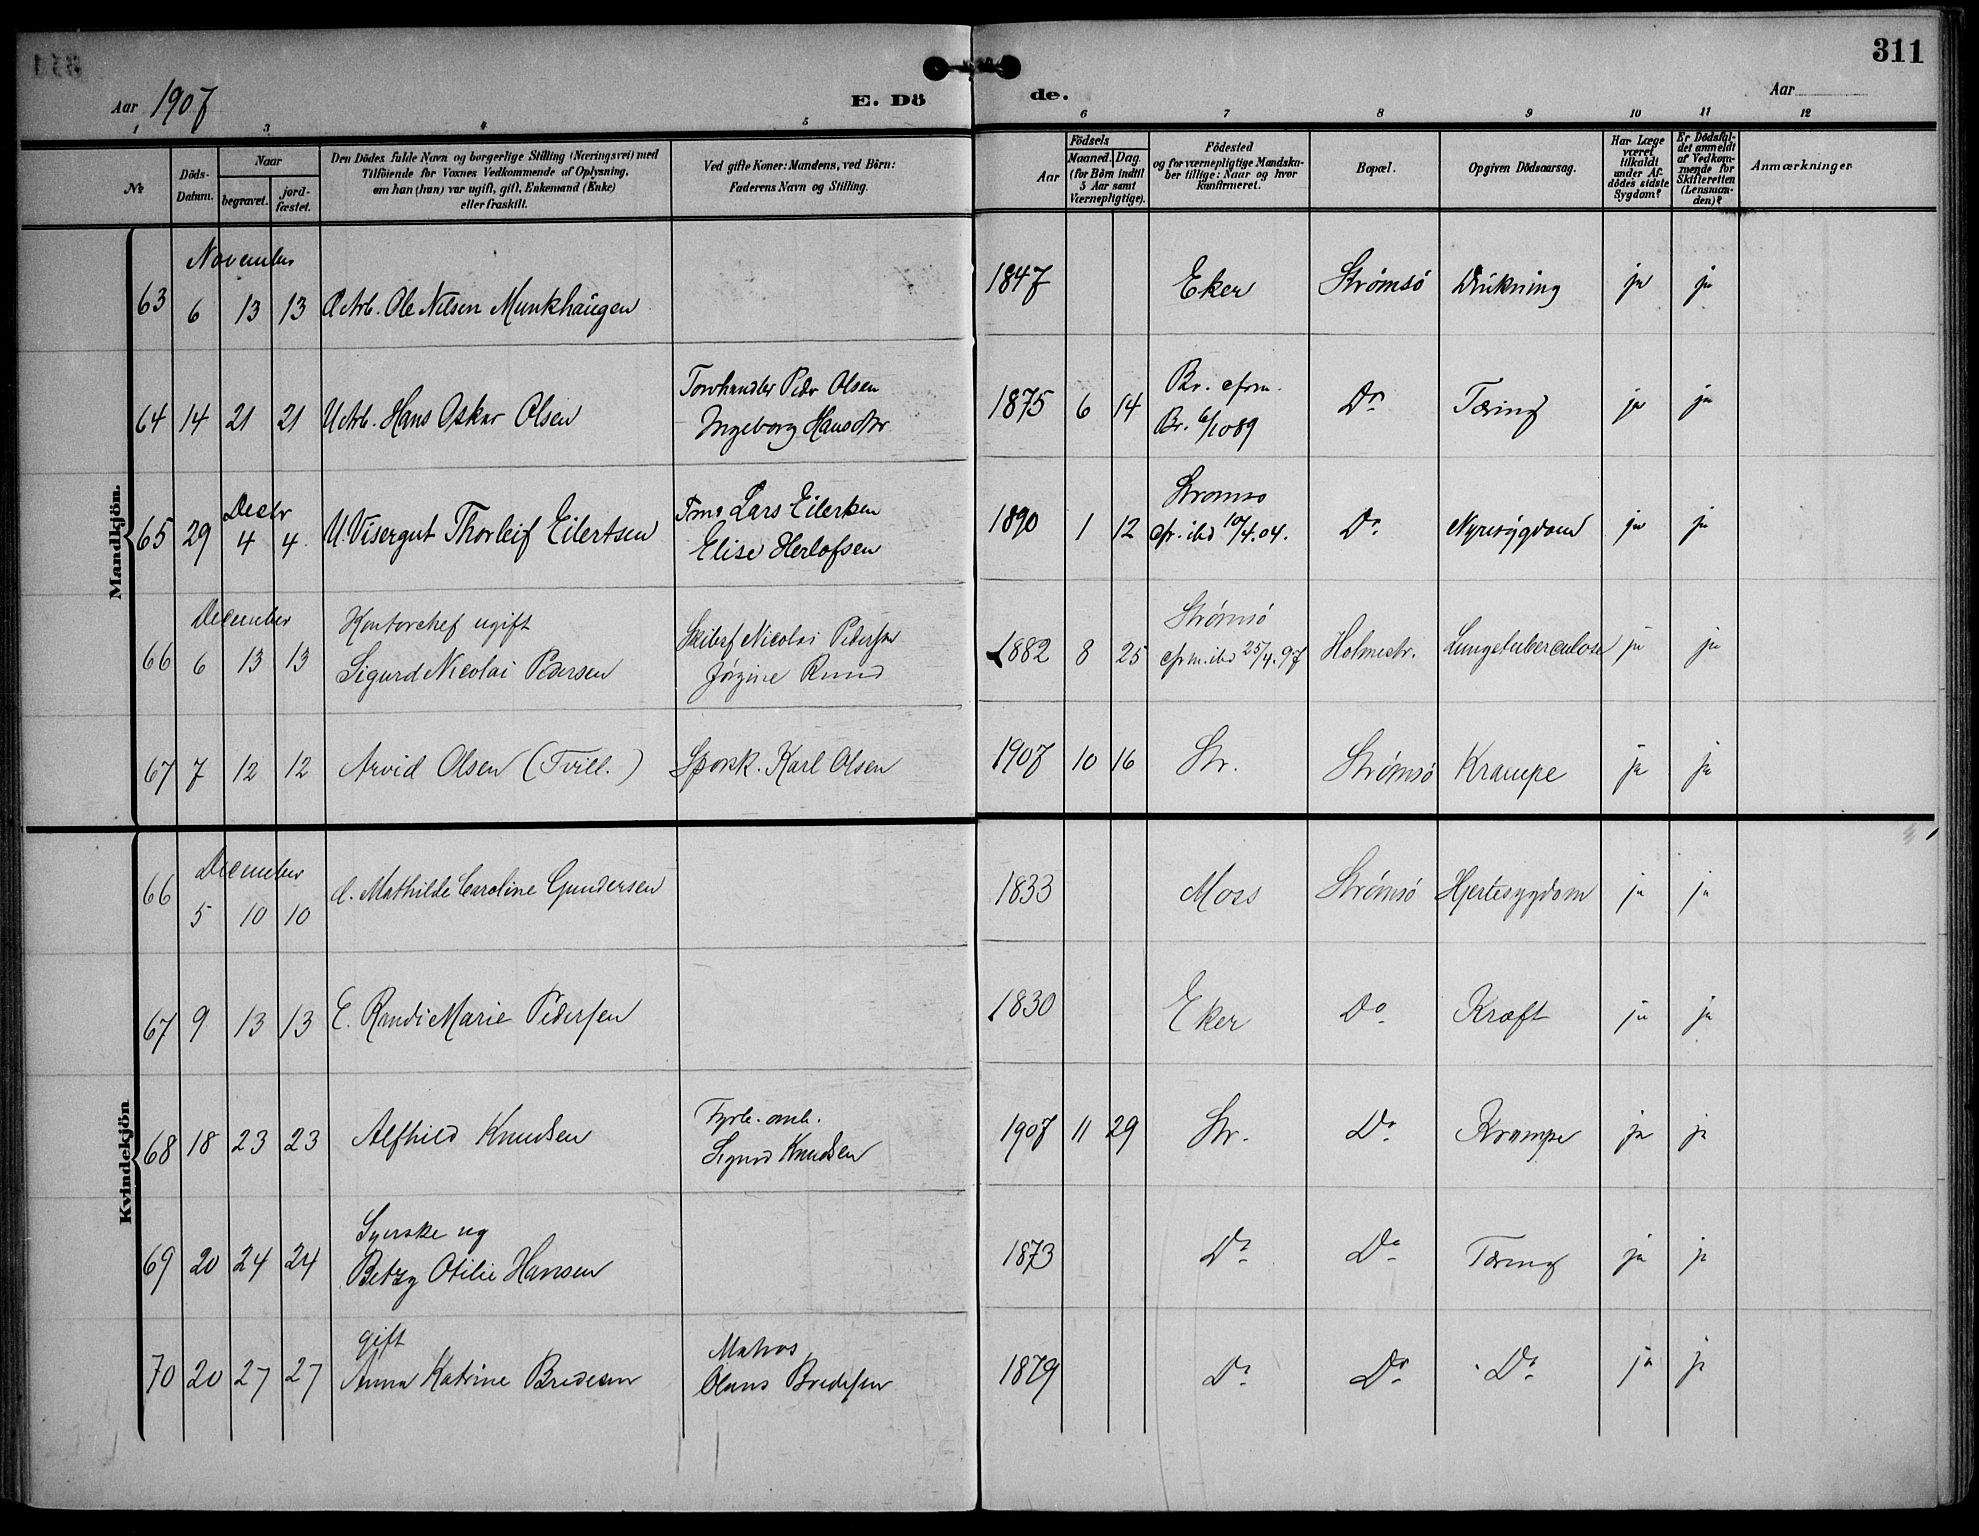 311
Aar 1907
E. Dö
de.
Aar
1 3 4 5 6 7 8 9 10 11 12
№
Döds-Datum.
Naar
begravet.
jord-fæstet.
Den Dödes fulde Navn og borgerlige Stilling (Næringsvei) med
Tilföiende for Voxnes Vedkommende af Oplysning,
om han (hun) var ugift, gift, Enkemand (Enke)
eller fraskilt.
Ved gifte Koner: Mandens, ved Börn:
Faderens Navn og Stilling.
Aar
Födsels
Maaned. Dag
(for Börn indtil
5 Aar samt
Værnepligtige).
Födested
og for værnepligtige Mandska-
ber tillige: Naar og hvor
konfirmeret.
Bopæl.
Opgiven Dödsaarsag.
Har Læge
været
tilkaldt
under Af-
dödes sidste
Sygdom?
Er Dödsfal-
det anmeldt
af Vedkom-
mende for
Skifteretten
(Lensman-
den)?
Anmærkninger
Mandkjön.
November
63 6 13 13 Ole Nilsen Munkhaugen 1847 Eker Strømsö Drukning ja ja
64 14 21 21 U Arb. Hans Oskar Olsen Peder Olsen
Ingeborg Hansdtr 1875 6 14 Br. cfrm.
Br. 6/10 89 Do Tæring ja ja
Decbr
65 29 4 4 U. Visergut Thorleif Eilertsen Lars Eilertsen
Elise Herlofsen 1890 1 12 Strømsø
cfr. ibd 10/4.04. Do Nyresygdom ja ja
December
Kontorchef ugift
66 6 13 13 Sigurd Nicolai Pedersen Nicolai Pedersen
Jørgine Ruud 1882 8 25 Strømsö
cfrm. ibd 25/4.97 Holmestr. Lungetuberculose ja ja
67 7 12 12 Arvid Olsen (Tvill.) Sporsk. Karl Olsen 1907 10 16 Str. Strømsö Krampe ja ja
Kvindekjön
December
66 5 10 10 Mathilde Caroline Gundersen 1833 Moss Strømsö Hjertesygdom ja ja
67 9 13 13 E. Randi Marie Pedersen 1830 Eker Do Kræft ja ja
68 18 23 23 Alfhild Knudsen Fyrb. omb.
Sigurd Knudsen 1907 11 29 Str. Do Krampe ja ja
Syerske ug
69 20 24 24 Betzy Otilie Hansen 1873 Do Do Tæring ja ja
gift
70 20 27 27 Anna Katrine Bredesen Matros
Olaus Bredesen 1879 Do Do Do ja ja